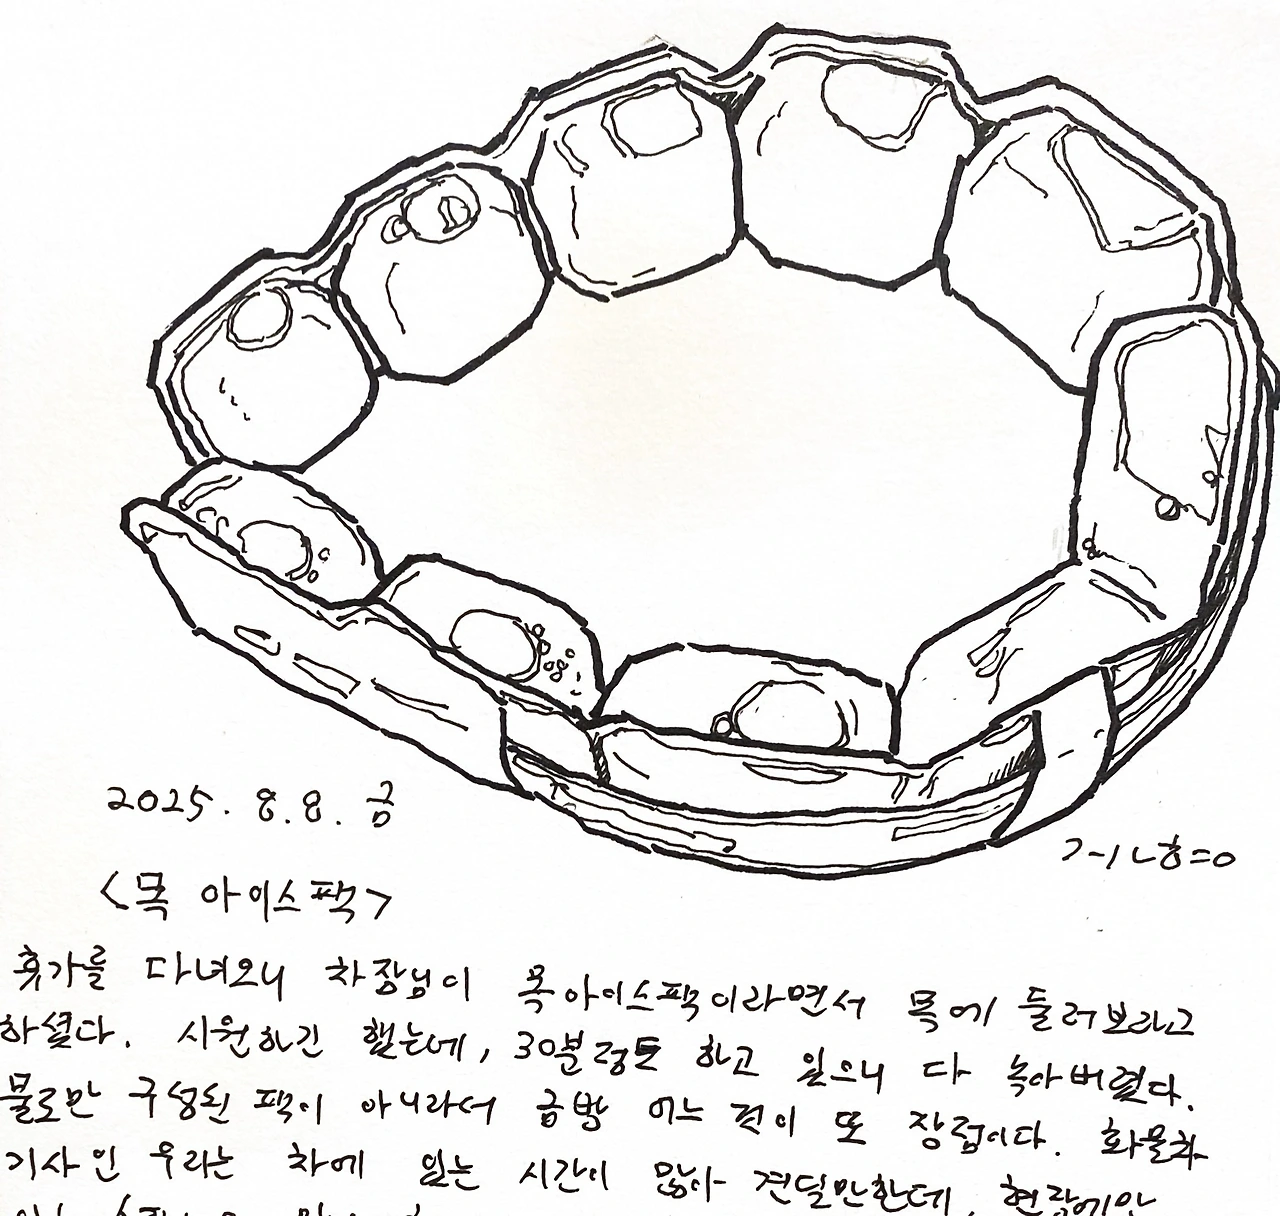 2025. 8. 8. 금
<목 아이스팩>
휴가를 다녀오니 차장님이 목아이스팩이라면서 목에 둘러보라고
하셨다. 시원하긴 했는데, 30분정도 하고 있으니 다 녹아버렸다.
물로만 구성된 팩이 아니라서 금방 어는 것이 또 장점이다. 화물차
기사인 우리는 차에 있는 시간이 많아 견딜만한데, 현장에만